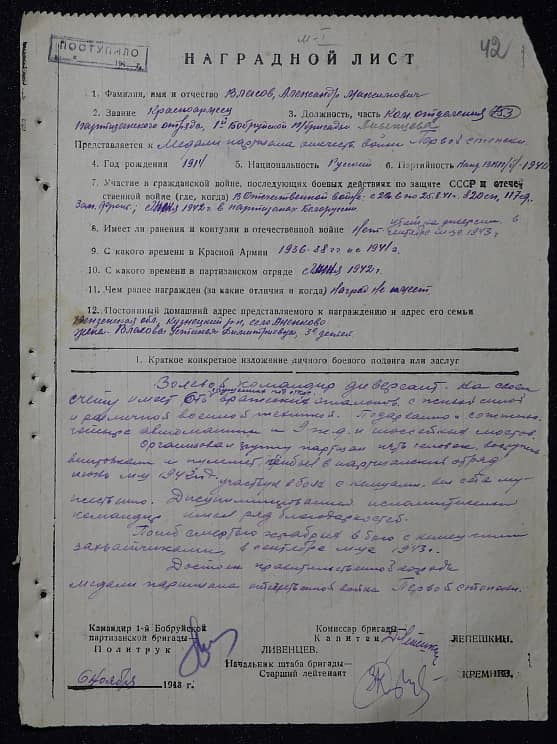 М-I
42
ПОСТУПИЛО
194 г.
НАГРАДНОЙ ЛИСТ
1. Фамилия, имя и отчество Власов, Александр Максимович
2. Звание Красноармеец 3. Должность, часть Ком. отделения
партизанского отряда, 1й Бобруйской п/бригады Ливенцева
Представляется к Медали партизана отечеств. войны Первой степени.
4. Год рождения 1914 5. Национальность Русский 6. Партийность Канд. ВКП/б/-1942
7. Участие в гражданской войне, последующих боевых действиях по защите СССР и отечественной войне (где, когда) В Отечественной войне с 22.6 по 25.8.41г.
Зап. фронт; с Июня 1942г. в партизанах Белоруссии
8. Имеет ли ранения и контузии в отечественной войне Нет
сентябре м-це 1943г.
9. С какого времени в Красной Армии 1936-38гг и с 1941г.
10. С какого времени в партизанском отряде с Июня 1942г.
11. Чем ранее награжден (за какие отличия и когда) Наград не имеет
12. Постоянный домашний адрес представляемого к награждению и адрес его семьи
Пензенская обл, Кузнецкий р-н, село Аненково
жена - Власова Устинья Димитриевна, 3е детей.
1. Краткое конкретное изложение личного боевого подвига или заслуг
Волевой командир диверсант. На своем
счету имеет вражеских эшелонов, с живой силой
и различной военной техникой. Подорвано и сожжено
четыре автомашин и 9 ж.д. и шоссейных мостов.
Организовал группу партизан пять человек,
винтовками и пулемет, прибыл в партизанский отряд
июнь м-ц 1942г. участвуя в боях с немцами, вел себя мужественно. Дисциплинированный исполнительный
командир, имел ряд благодарностей.
Погиб смертью храбрых в бою с немецкими
захватчиками, в сентябре м-це 1943г.
Достоин правительственной награде
медали партизана отечественной войны Первой степени.
Командир 1-й Бобруйской
партизанской бригады-
Политрук ЛИВЕНЦЕВ.
Комиссар бригады-
Капитан ЛЕПЕШКИН.
Начальник штаба бригады-
Старший лейтенант КРЕМНЕВ.
6 Ноября 1943 г.